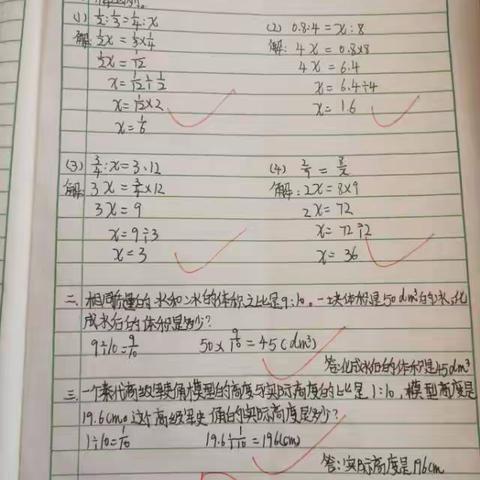 (1) 1/2:1/3=1/4:x
解: 1/2x=1/3×1/4
1/2x=1/12
x=1/12÷1/2
x=1/12×2
x=1/6
(2) 0.8:4=x:8
解: 4x=0.8×8
4x=6.4
x=6.4÷4
x=1.6
(3) 3/4:x=3:12
解: 3x=3/4×12
3x=9
x=9÷3
x=3
(4) 2/9=8/x
解: 2x=8×9
2x=72
x=72÷2
x=36
二、相同质量的水和冰的体积之比是9:10。一块体积是50dm³的冰,化
成水后的体积是多少?
9÷10=9/10 50×9/10=45(dm³)
答:化成水后的体积是45dm³
三、一个秦代高级军吏俑模型的高度与实际高度的比是1:10,模型高度是
19.6cm。这个高级军吏俑的实际高度是多少?
1÷10=1/10 19.6÷1/10=196(cm)
答:实际高度是196cm